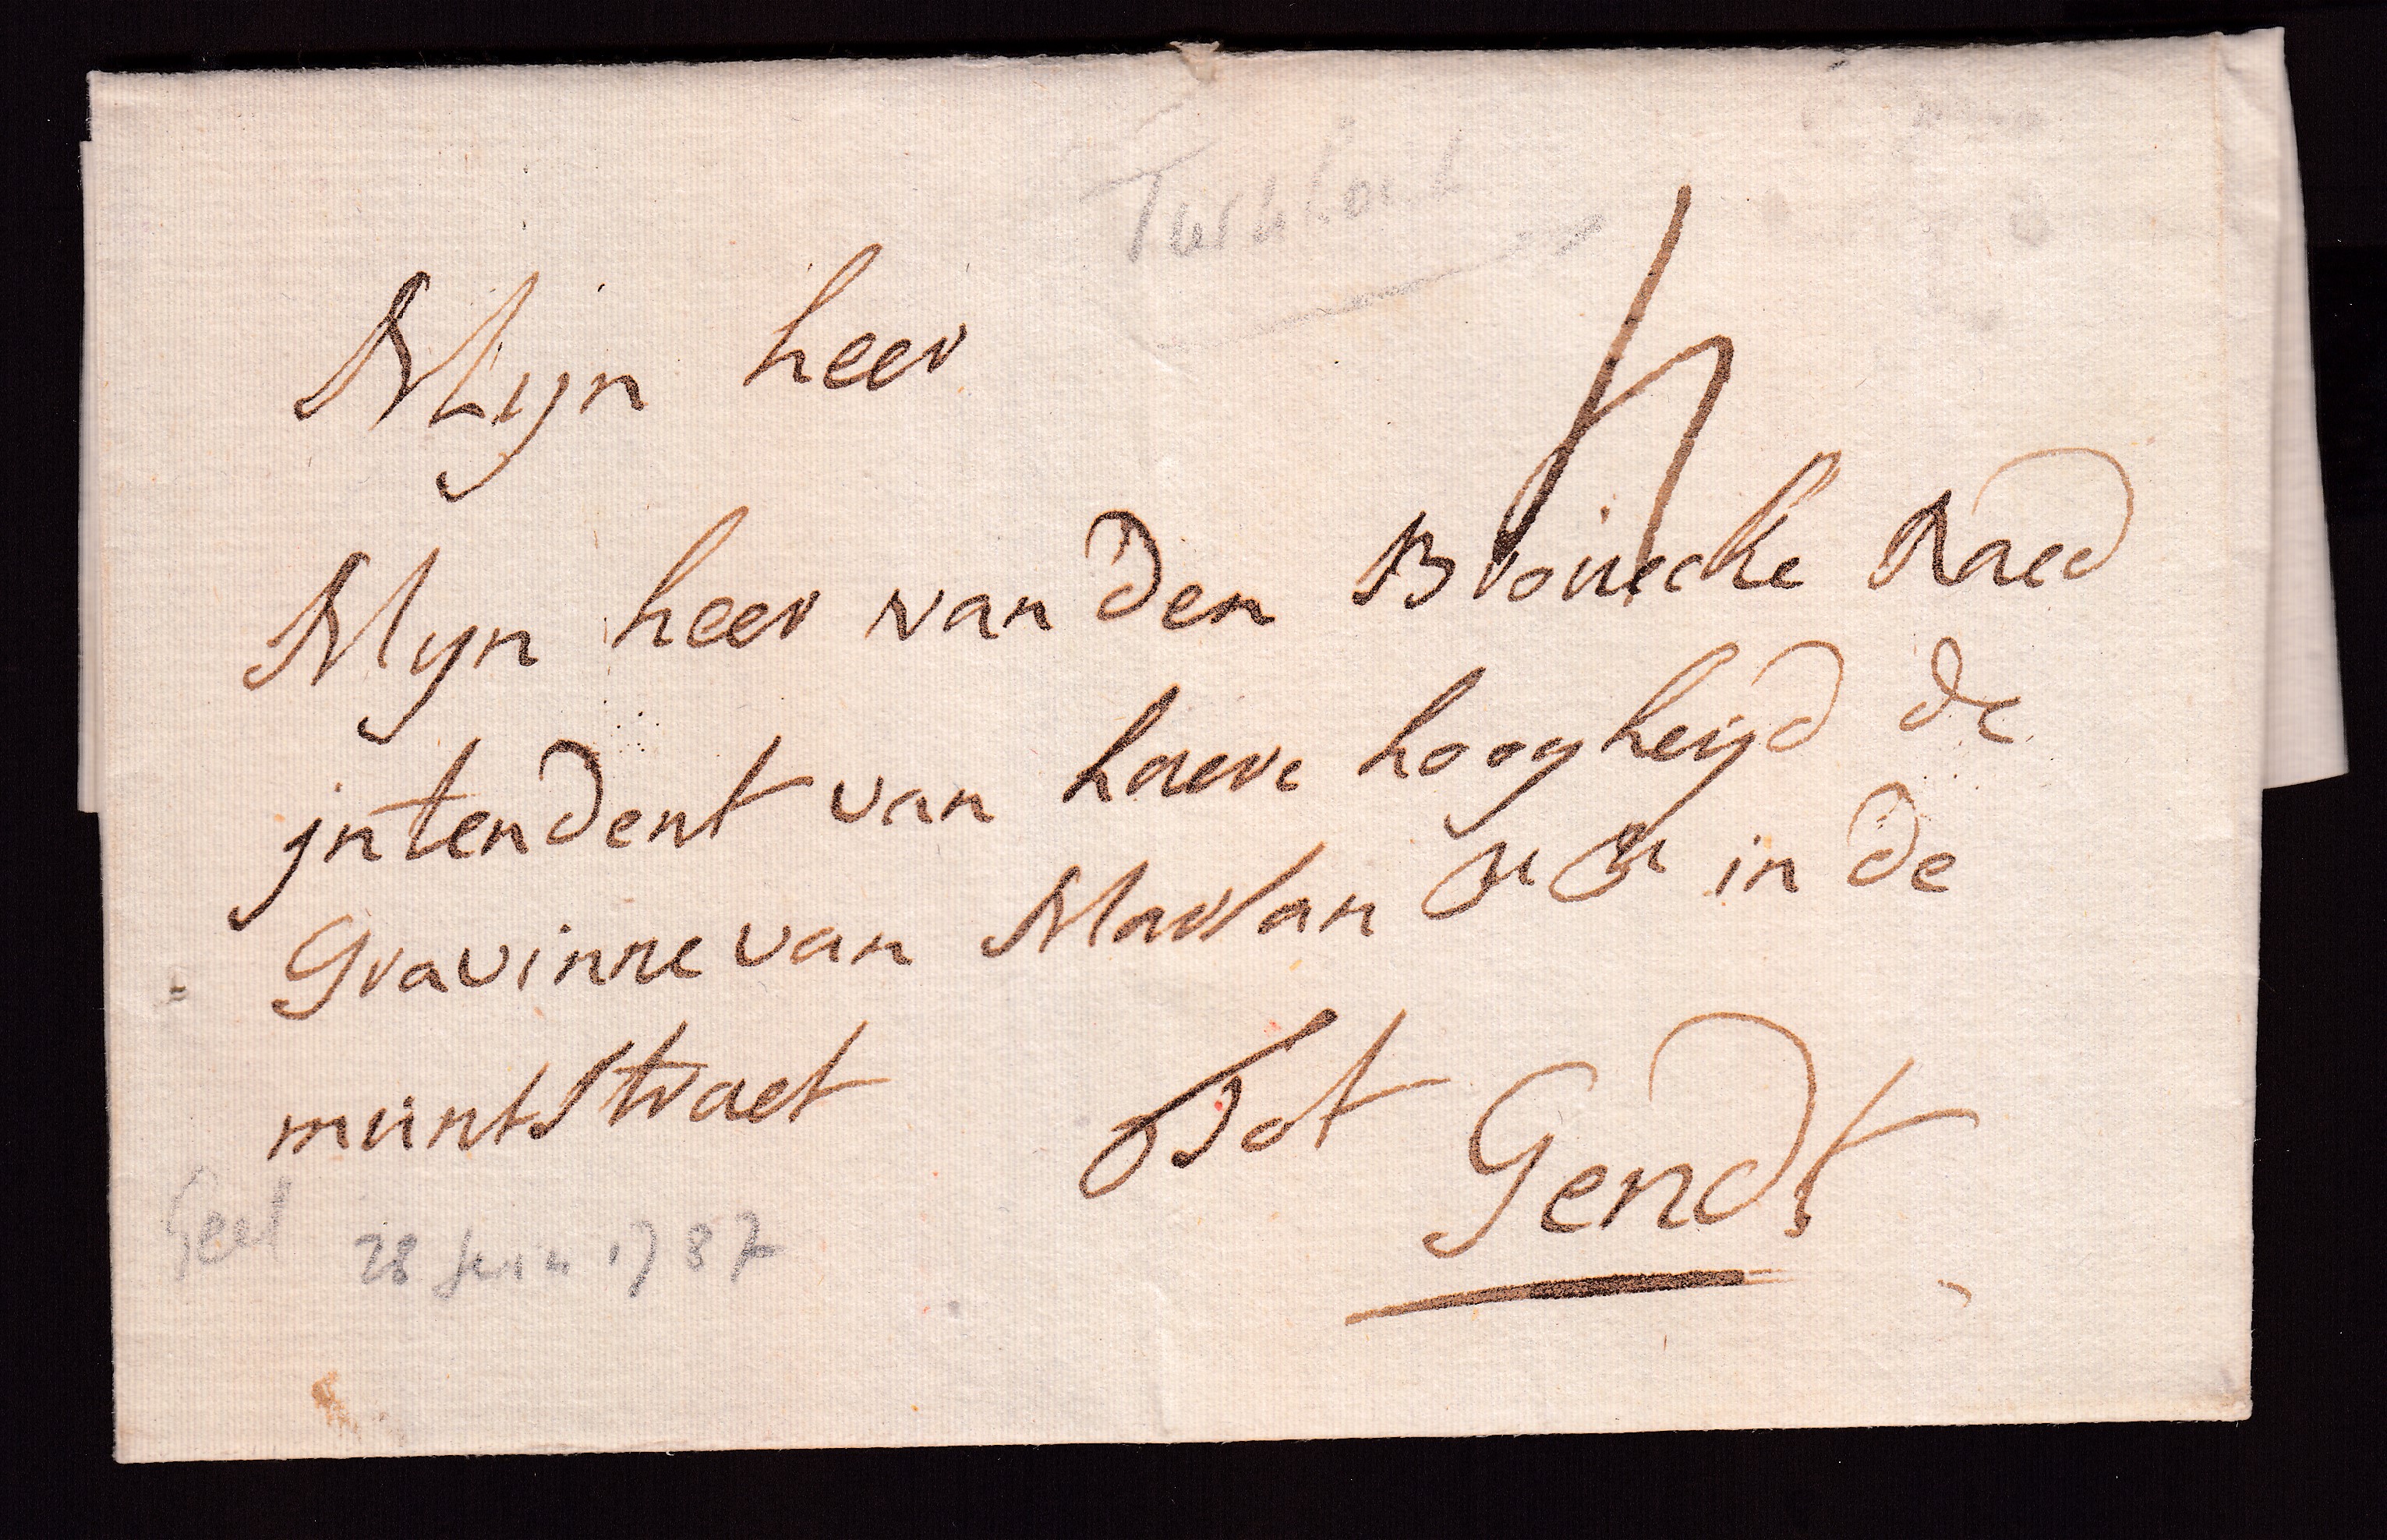 Turnhout
Mijn heer
4
Mijn heer van den Broücke Raed
jntendent van haere hoogheijd de
Gravinne van Marlan in de
müntstraet tot Gendt
Geel 28 Juin 1787